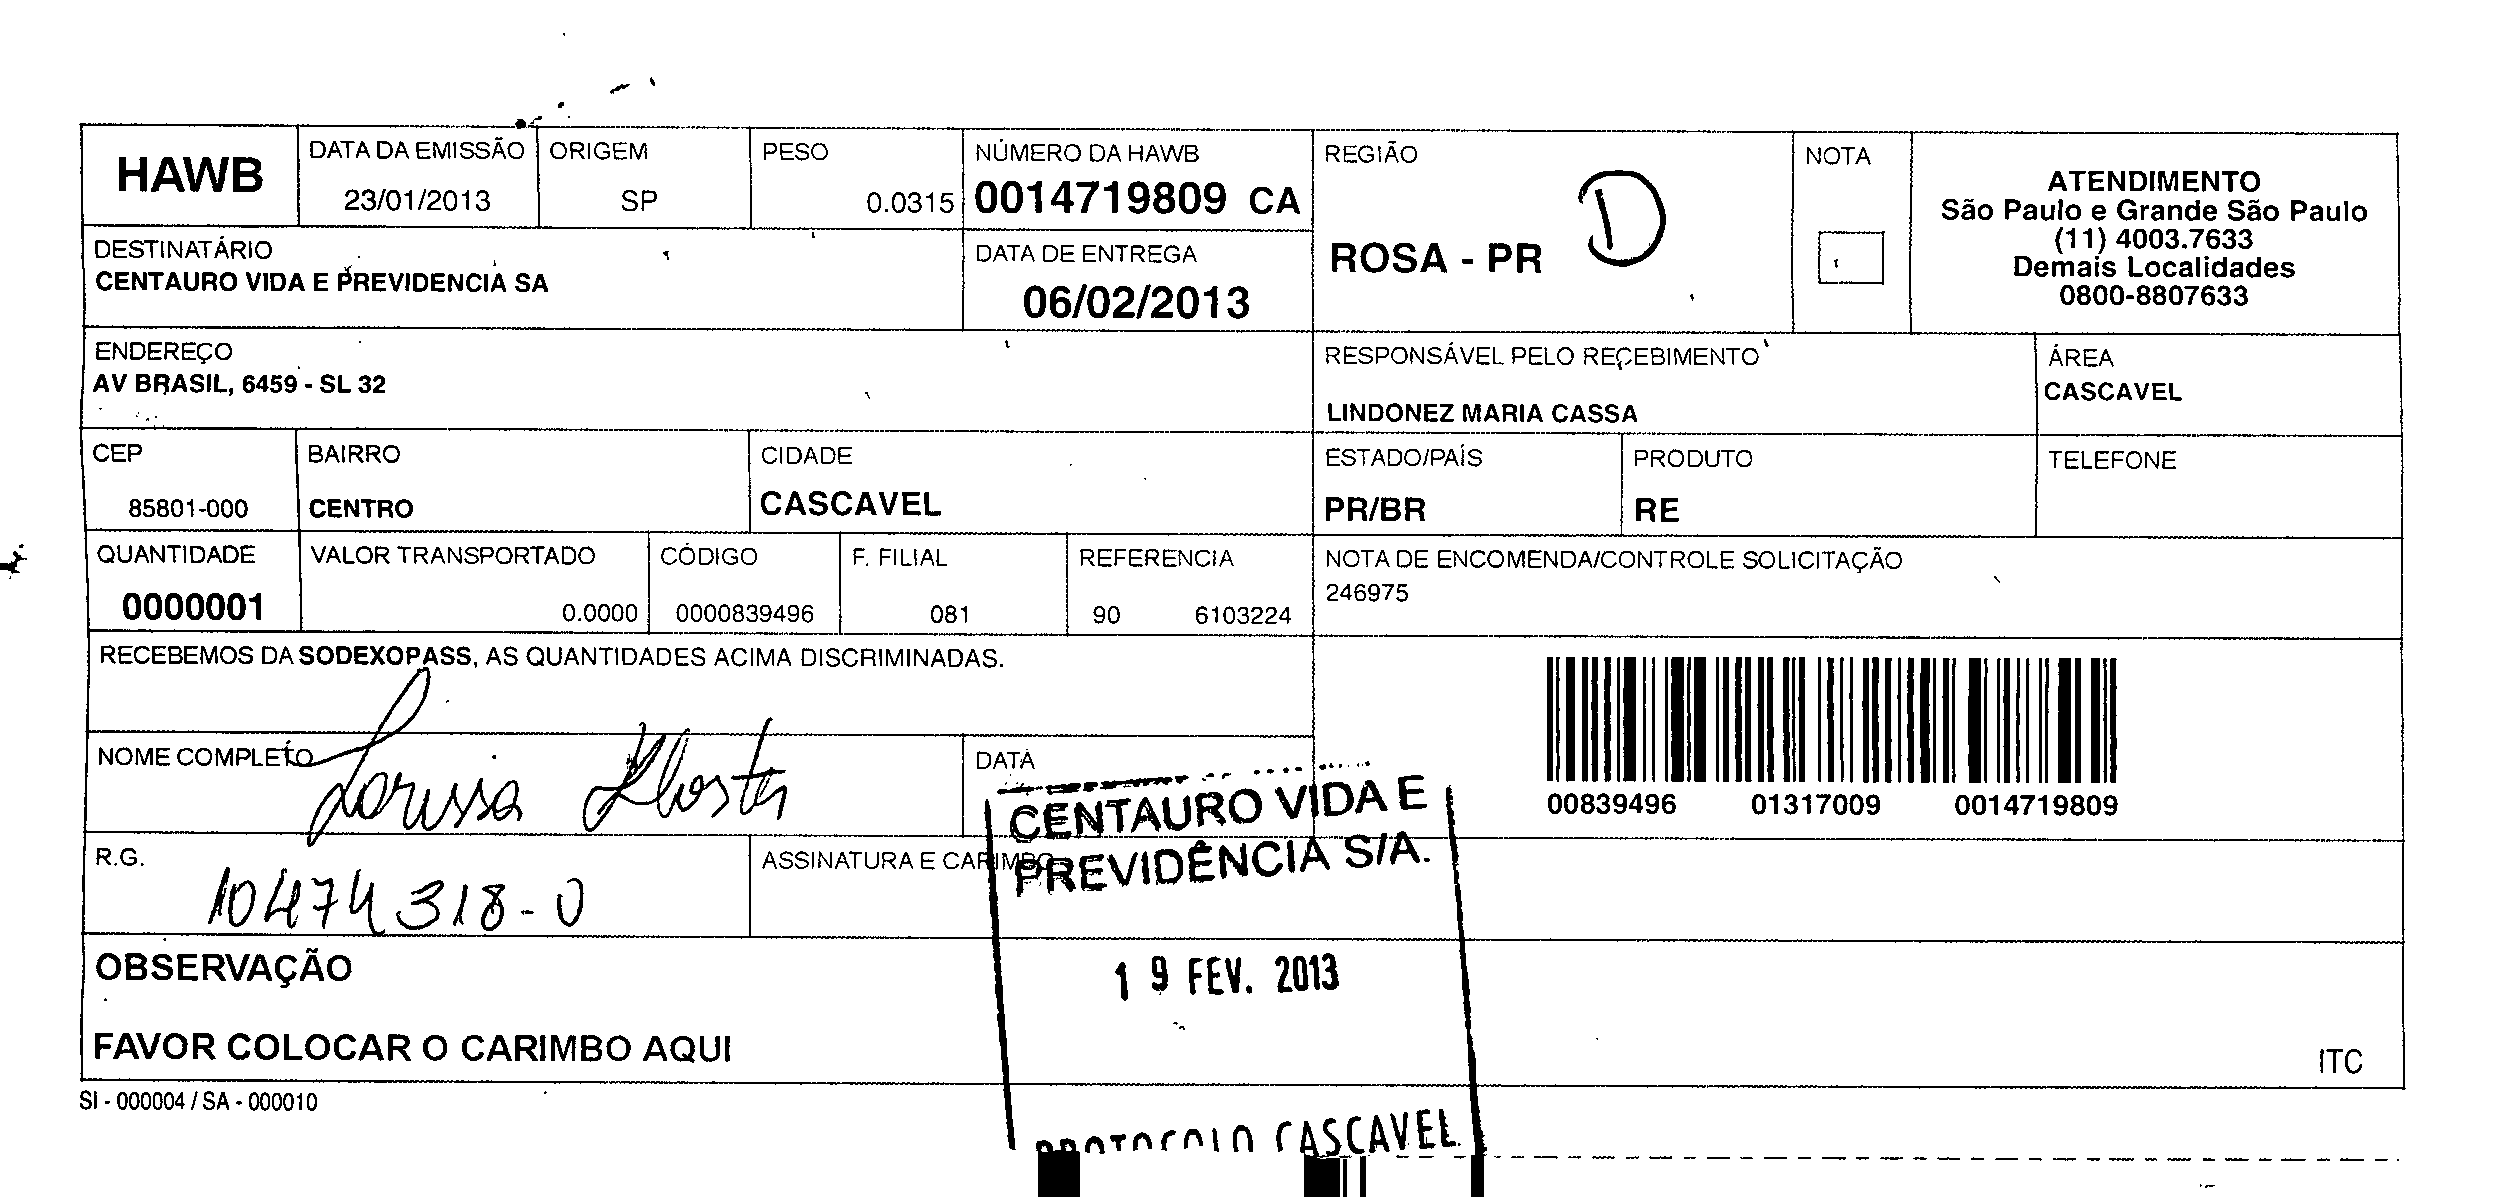 HAWB
DATA DA EMISSÃO
23/01/2013
ORIGEM
SP
PESO
0.0315
NÚMERO DA HAWB
0014719809 CA
REGIÃO
ROSA - PR
D
NOTA
ATENDIMENTO
São Paulo e Grande São Paulo
(11) 4003.7633
Demais Localidades
0800-8807633
DESTINATÁRIO
CENTAURO VIDA E PREVIDENCIA SA
DATA DE ENTREGA
06/02/2013
ENDEREÇO
AV BRASIL, 6459 - SL 32
RESPONSÁVEL PELO RECEBIMENTO
LINDONEZ MARIA CASSA
ÁREA
CASCAVEL
CEP
85801-000
BAIRRO
CENTRO
CIDADE
CASCAVEL
ESTADO/PAÍS
PR/BR
PRODUTO
RE
TELEFONE
QUANTIDADE
0000001
VALOR TRANSPORTADO
0.0000
CÓDIGO
0000839496
F. FILIAL
081
REFERENCIA
90 6103224
NOTA DE ENCOMENDA/CONTROLE SOLICITAÇÃO
246975
RECEBEMOS DA SODEXOPASS, AS QUANTIDADES ACIMA DISCRIMINADAS.
NOME COMPLETO
Larissa
DATA
00839496 01317009 0014719809
R.G.
10474318-0
ASSINATURA E CARIMBO
CENTAURO VIDA E
PREVIDÊNCIA S/A.
19 FEV. 2013
PROTOCOLO CASCAVEL
OBSERVAÇÃO
FAVOR COLOCAR O CARIMBO AQUI
ITC
SI - 000004 / SA - 000010